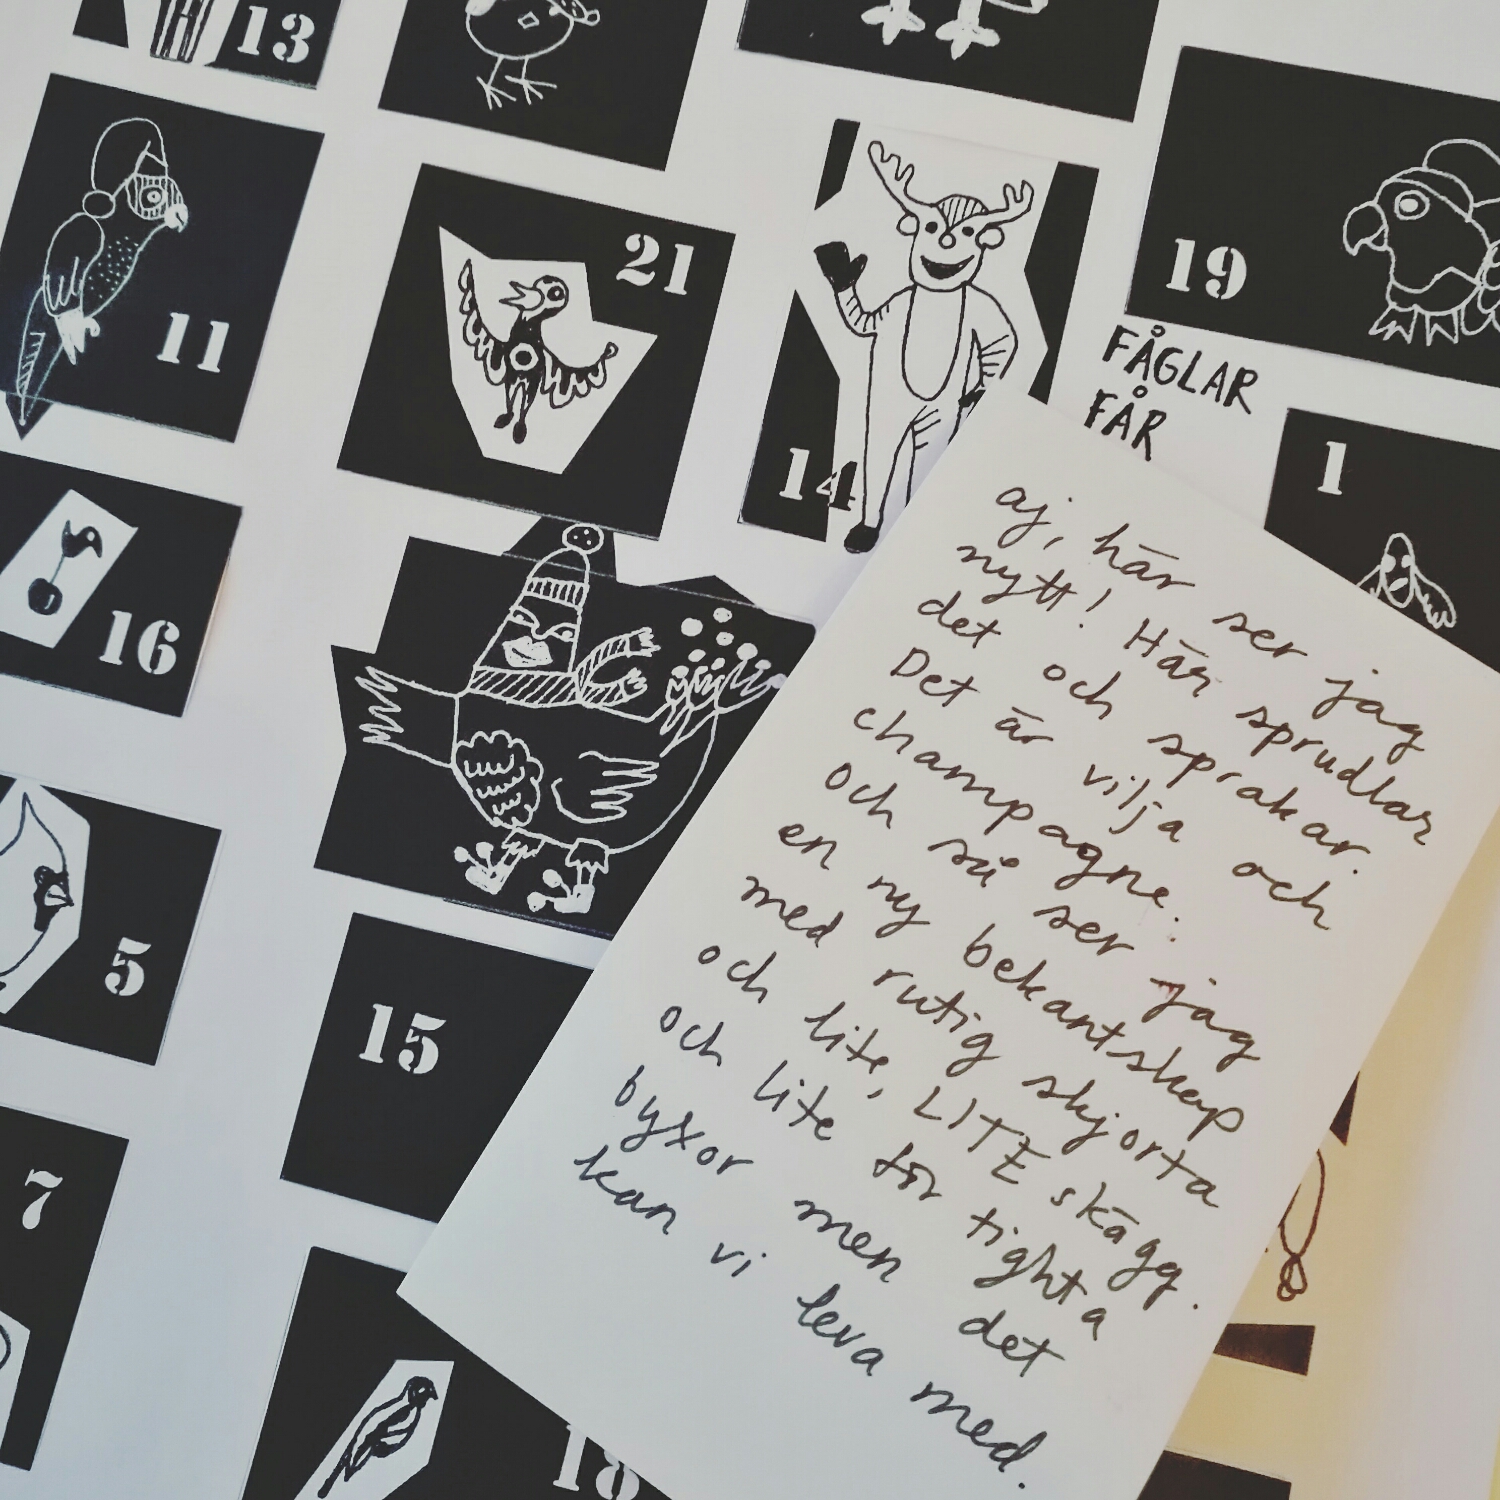 13
11
21
14
19
FÅGLAR
FÅR
1
16
5
15
7
18
aj, här ser jag
nytt! Här sprudlar
det och sprakar.
Det är vilja och
champagne.
och så ser jag
en ny bekantskap
med rutig skjorta
och lite, LITE skägg.
och lite för tighta
byxor men det
kan vi leva med.